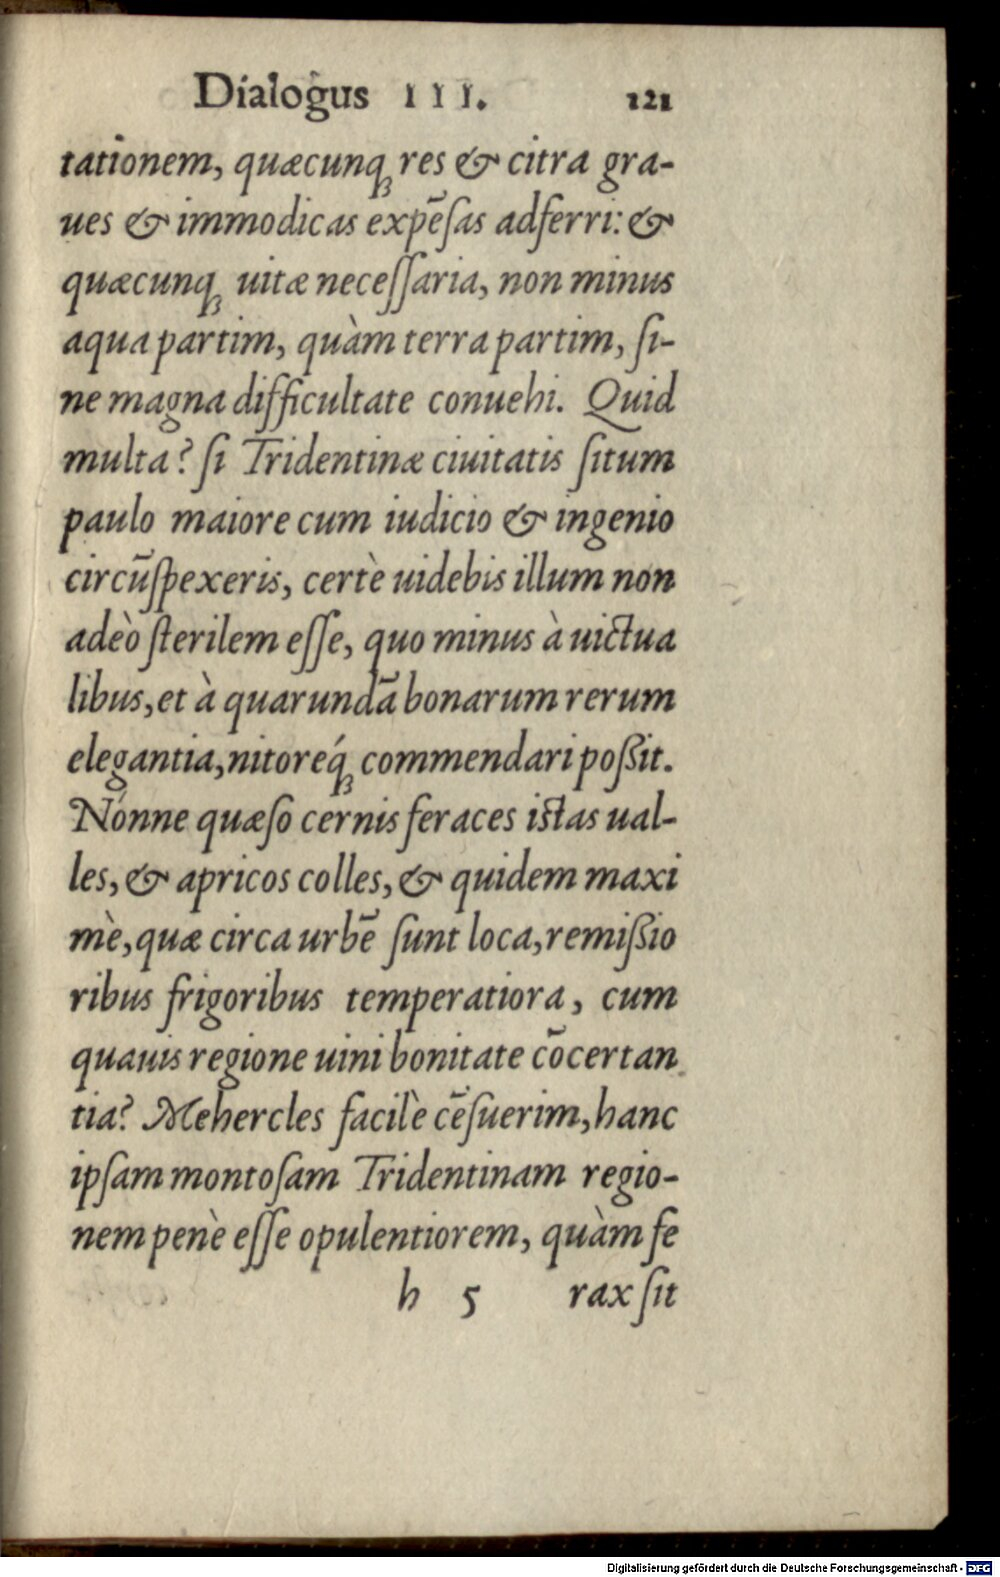 Dialogus III. 121
tationem, quæcunq́ꝫ res & citra gra-
ues & immodicas expēſas adferri: &
quæcunqꝫ uitæ neceſſaria, non minus
aqua partim, quàm terra partim, ſi-
ne magna difficultate conuehi. Quid
multa? ſi Tridentinæ ciuitatis ſitum
paulo maiore cum iudicio & ingenio
circūſpexeris, certè uidebis illum non
adeò ſterilem eſſe, quo minus à uictua
libus, et à quarundā bonarum rerum
elegantia, nitoreq́ꝫ commendari poßit.
Nónne quæſo cernis feraces iſtas ual-
les, & apricos colles, & quidem maxi
mè, quæ circa urbē ſunt loca, remißio
ribus frigoribus temperatiora, cum
quauis regione uini bonitate cōcertan
tia? Mehercles facilè cēſuerim, hanc
ipſam montoſam Tridentinam regio-
nem penè eſſe opulentiorem, quàm fe
h 5 rax ſit
Digitalisierung gefördert durch die Deutsche Forschungsgemeinschaft - DFG